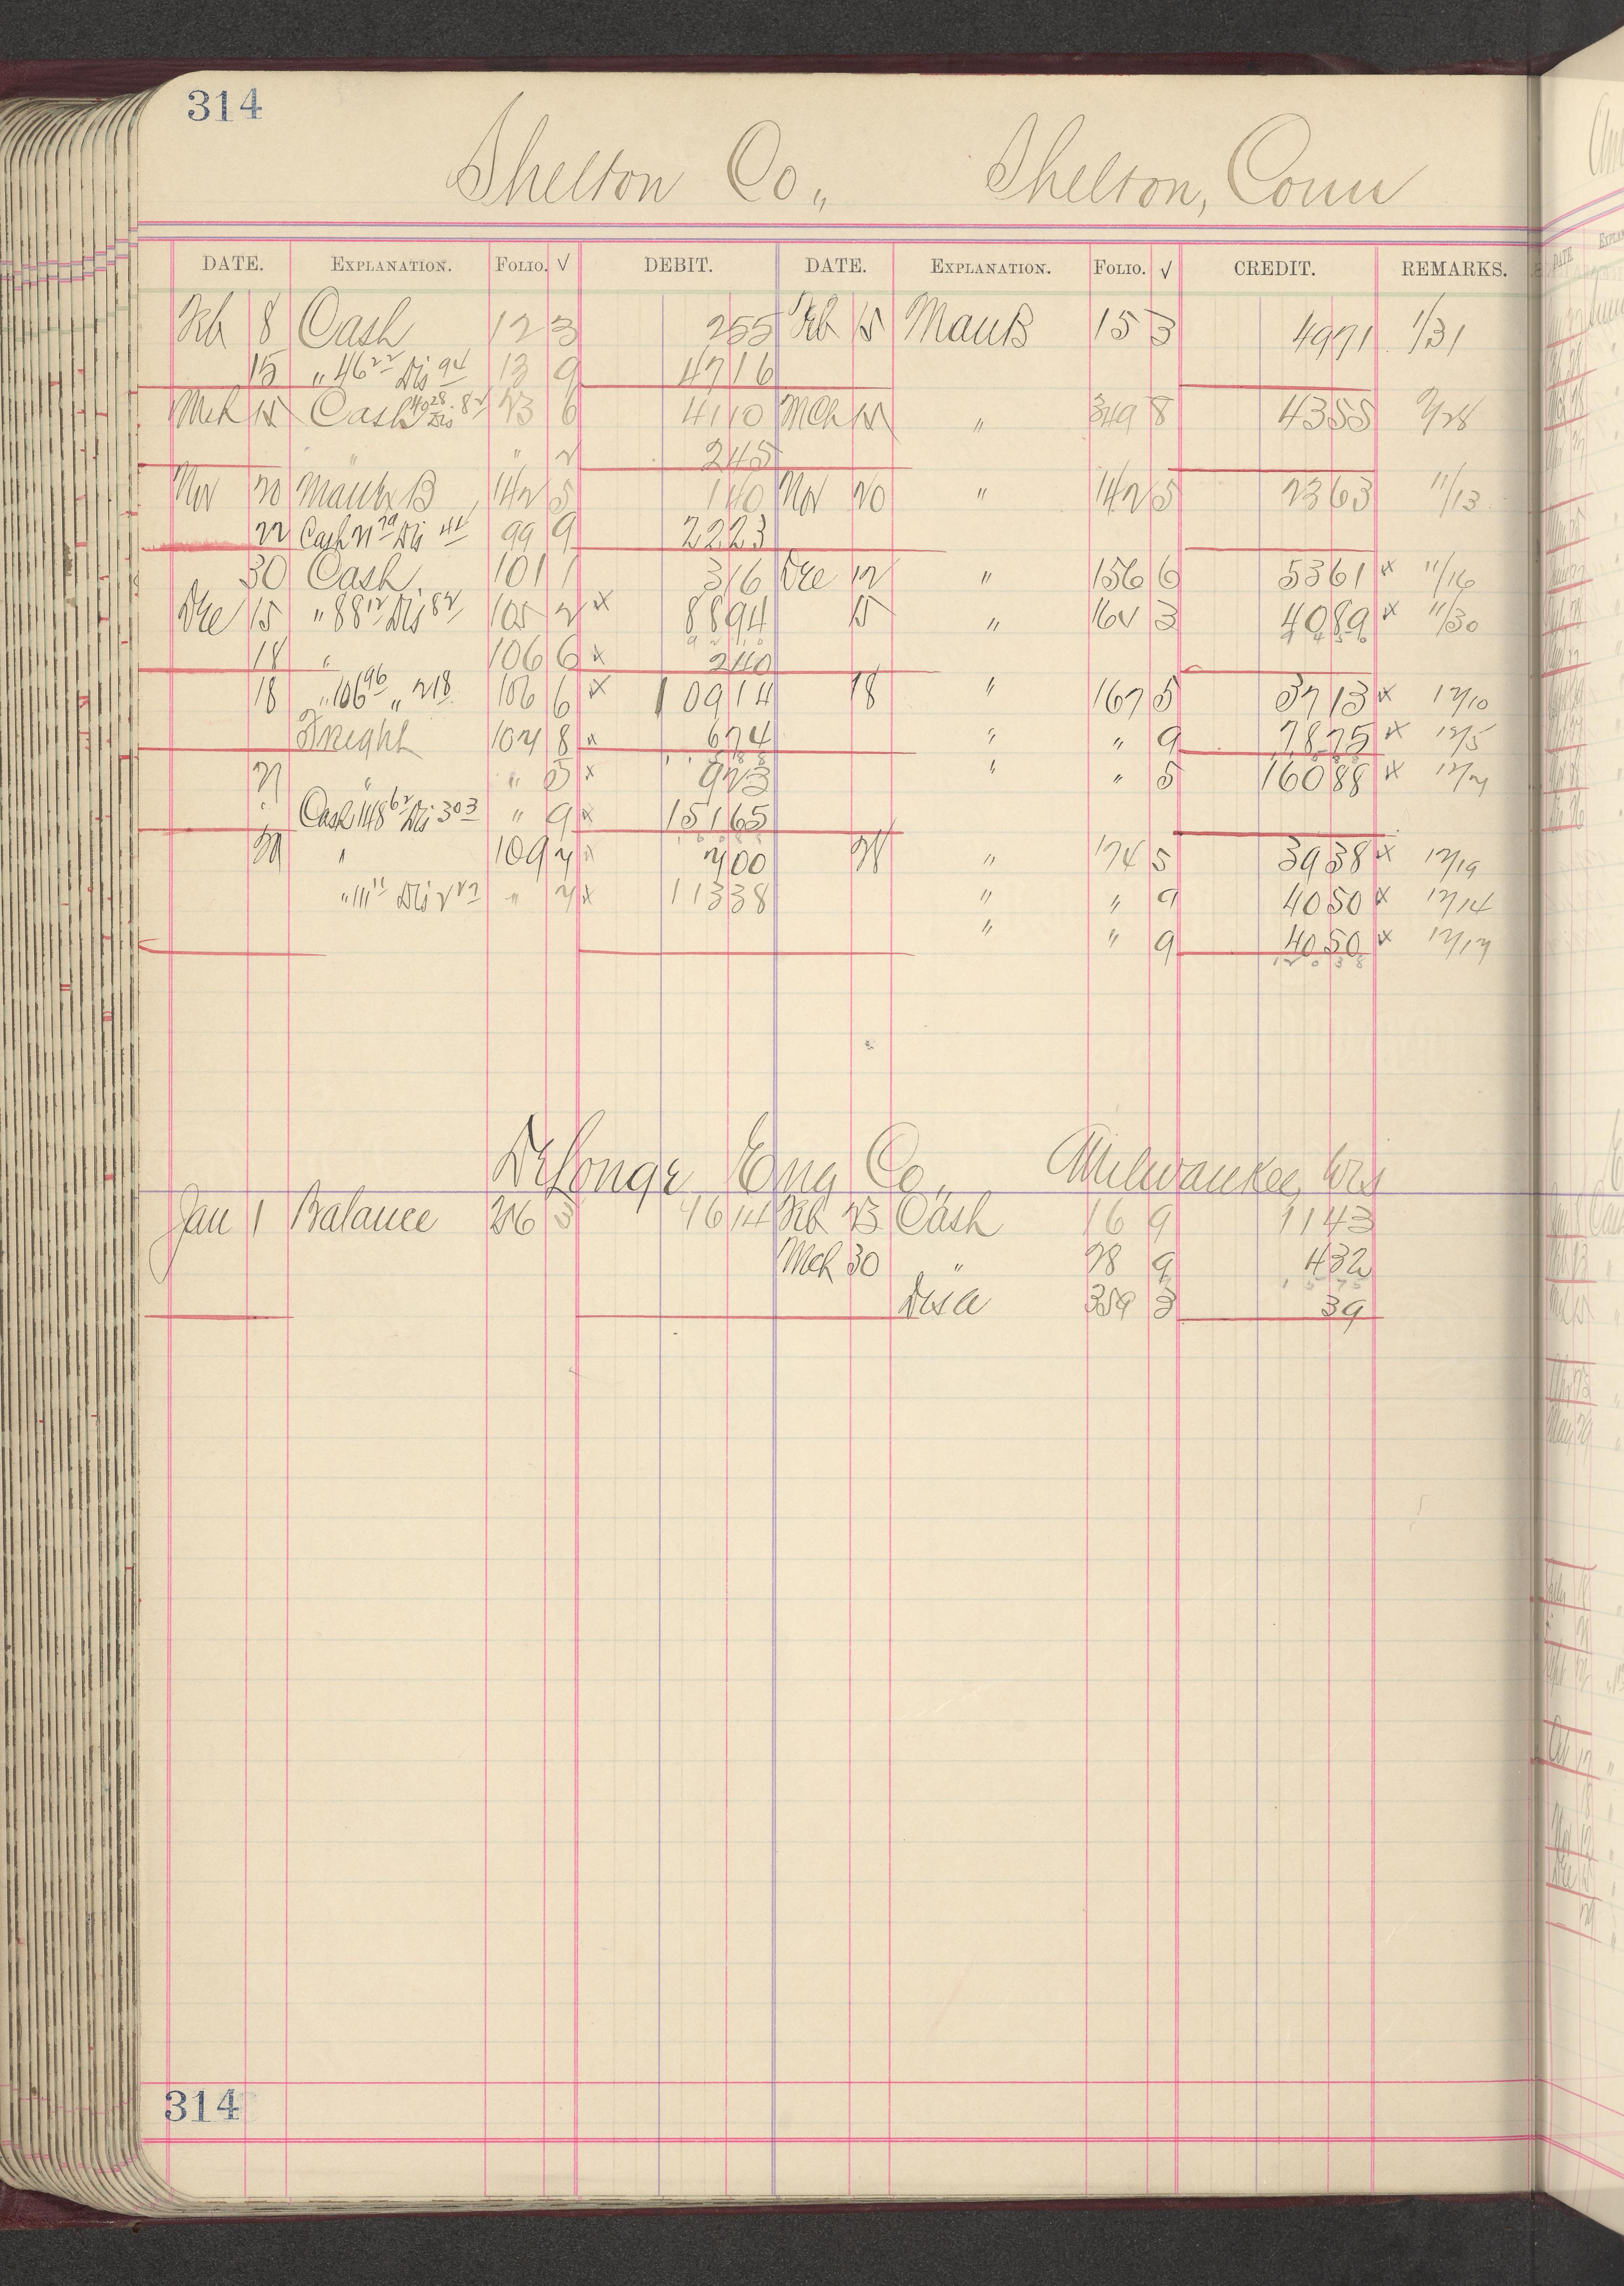 314
Shelton Co., Shelton, Conn
DATE. EXPLANATION. FOLIO. √ DEBIT. DATE. EXPLANATION. FOLIO. √ CREDIT. REMARKS.
Feb 8 Cash 12 3 2 55 Feb 15 ManB 15 3 49 71 1/31
15 " 46 22 Dis 94 13 9 47 16
Mch 15 Cash 40 28 Dis 82 23 6 41 10 Mch 15 " 349 8 43 55 2/28
" " 2 2 45
Nov 20 B 142 5 1 40 Nov 20 " 142 5 23 63 11/13
22 Cash 21 79 Dis 44 99 9 22 23
30 Cash 101 1 3 16 Dec 12 " 156 6 53 61 x 11/16
Dec 15 " 88 12 Dis 82 105 2 x 88 94 15 " 162 3 40 89 x 11/30
18 " 106 6 x 2 40
18 " 106 96 " 218 106 6 x 109 14 18 " 167 5 37 13 x 12/10
Freight 104 8 x 6 74 " " 9 78 75 x 12/5
21 " " 5 x 9 23 " " 5 160 88 x 12/7
" Cash 148 62 Dis 3 03 " 9 x 151 65
29 " 109 7 x 7 00 28 " 174 5 39 38 x 12/19
" 111 11 Dis 2 27 " 7 x 113 38 " " 9 40 50 x 12/14
" " 9 40 50 x 12/17
DeLonge Eng Co., Milwaukee, Wis
Jan 1 Balance 216 3 16 14 Feb 23 Cash 16 9 11 43
Mch 30 " 28 9 4 32
359 3 39
314